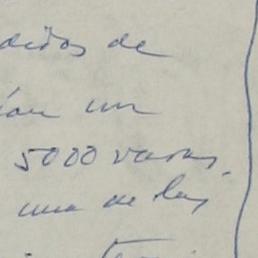 didos de
ían un
5000 varas,
una de las